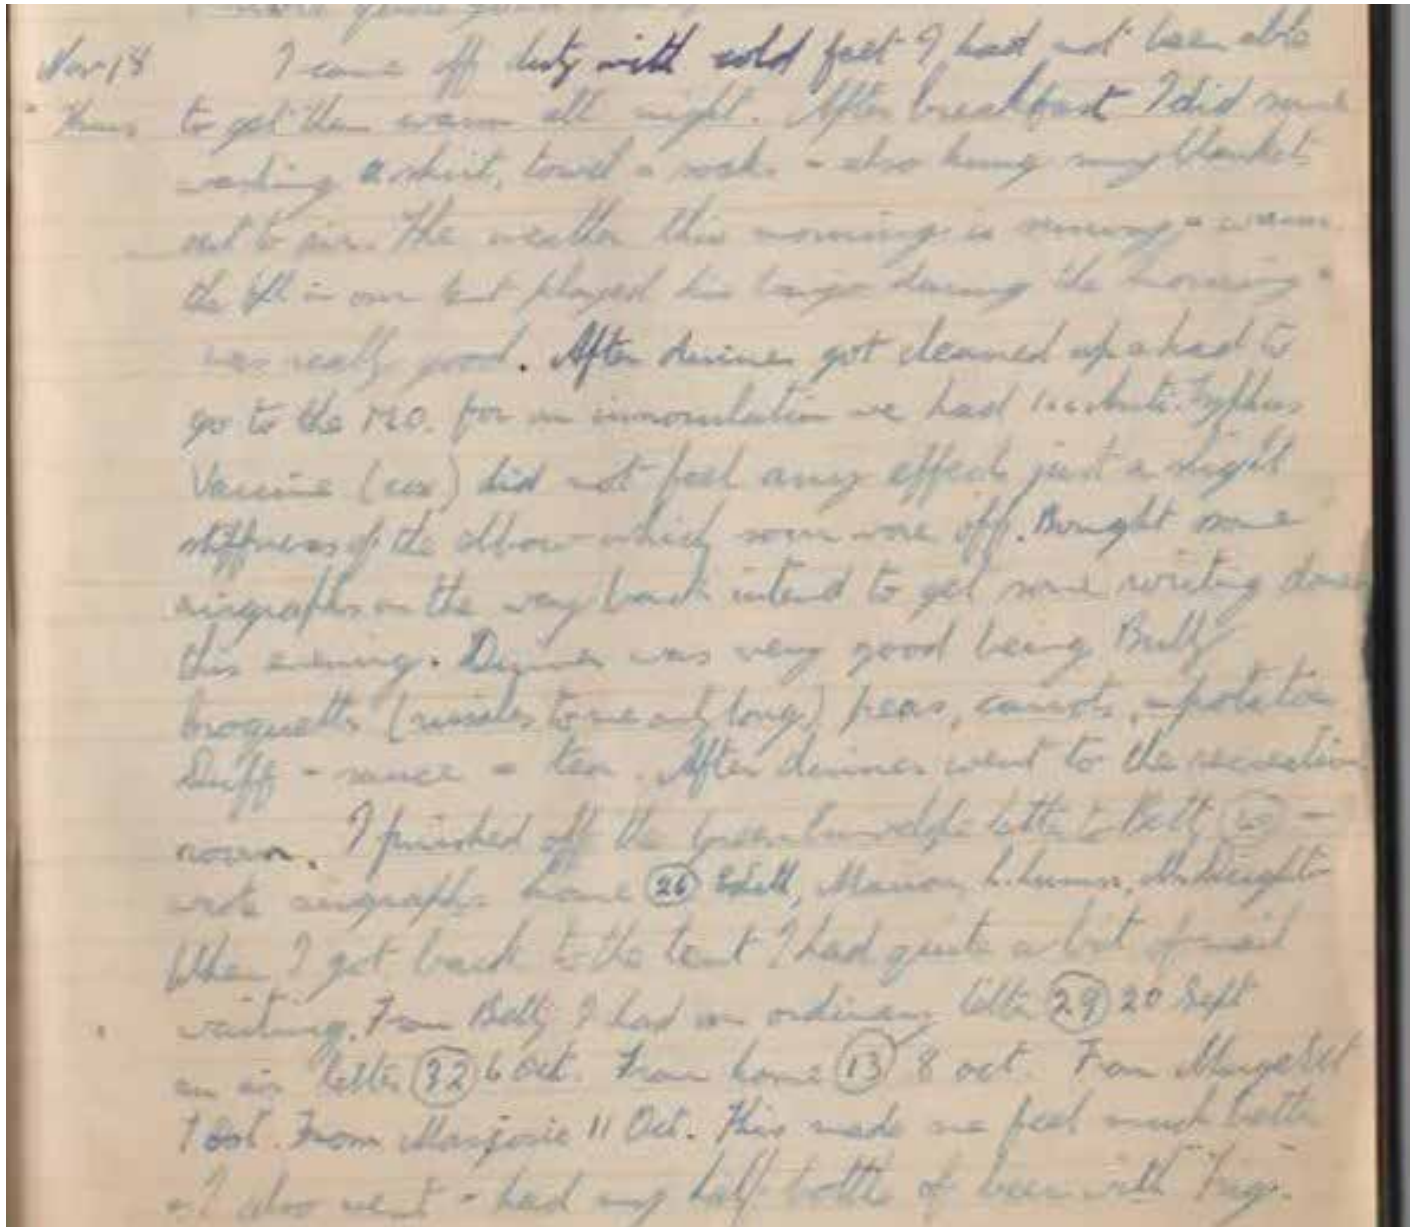 Nov 18 I came off duty with cold feet I had not been able
Thurs to get them warm all night. After breakfast I did some
washing a shirt, towel & socks - also hung my blankets
out to air. The weather this morning is sunny & warm
the in our tent played his banjo during the morning &
was really good. After dinner got cleaned up & had to
go to the M.O. for an innoculation we had Typhus
Vaccine (cox) did not feel any effect just a slight
stiffness of the elbow which soon wore off. Bought some
airgraphs on the way back intend to get some writing done
this evening. Dinner was very good being Bully
croquetts (rissoles to me and you) peas, carrots, & potatoes
Duff - sauce & tea. After dinner went to the recreation
room. I finished off the green envelope letter to Betty -
wrote airgraphs home 26 Edith, Marion,
When I got back to the tent I had quite a bit of mail
waiting. From Betty I had an ordinary letter 29 20 Sept
an air letter 32 6 Oct. From home 13 8 Oct. From
7 Oct. From Marjorie 11 Oct. This made me feel much better
& I also went & had my half bottle of beer with